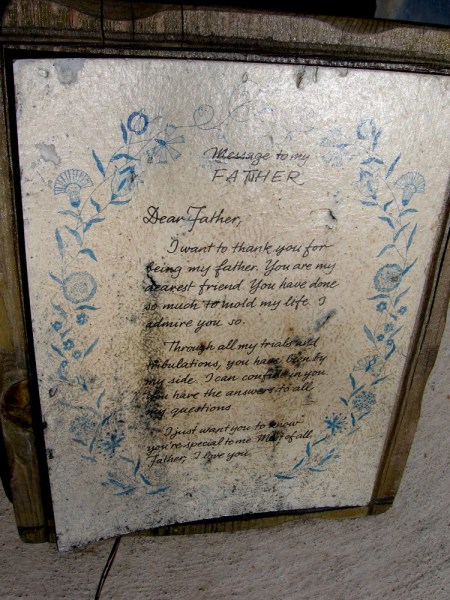 Message to my
FATHER
Dear Father,
I want to thank you for
being my father. You are my
dearest friend. You have done
so much to mold my life. I
admire you so.
Through all my trials and
tribulations, you have been by
my side. I can confide in you.
You have the answers to all
my questions
I just want you to know
you're special to me Most of all,
Father, I love you.